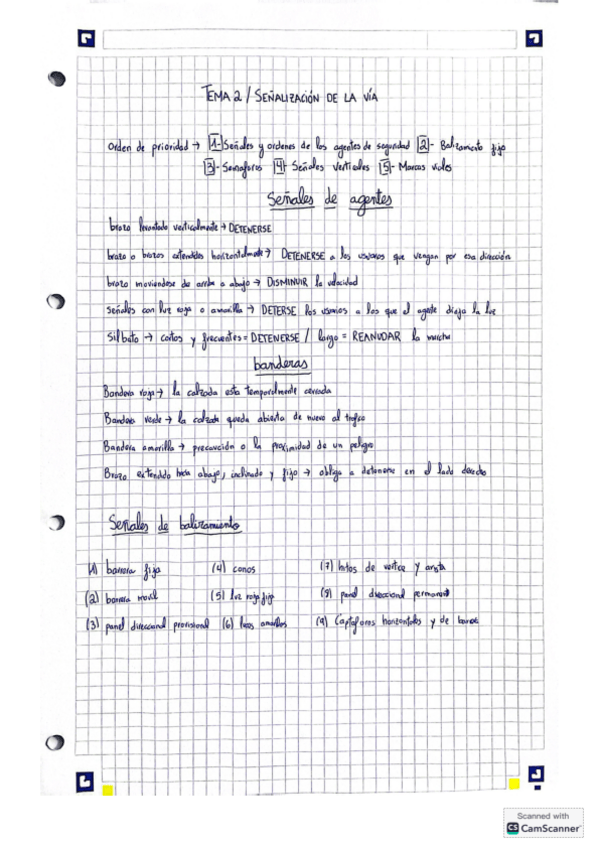 TEMA 2 / SEÑALIZACIÓN DE LA VÍA
Orden de prioridad → 1- Señales y ordenes de los agentes de seguridad 2- Balizamento fijo
3- Semaforos 4- Señales verticales 5- Marcas viales
Señales de agentes
brazo levantado verticalmente → DETENERSE
brazo o brazos extendidos horizontalmente → DETENERSE a los usuarios que vengan por esa dirección
brazo moviendose de arriba a abajo → DISMINUIR la velocidad
señales con luz roja o amarilla → DETERSE los usuarios a los que el agente dirija la luz
Silbato → cortos y frecuentes = DETENERSE / largo = REANUDAR la marcha
banderas
Bandera roja → la calzada esta temporalmente cerrada
Bandera verde → la calzada queda abierta de nuevo al trafico
Bandera amarilla → precaución a la proximidad de un peligro
Brazo extendido hacia abajo, inclinado y fijo → obliga a detenerse en el lado derecho
Señales de balizamiento
(1) barrera fija (4) conos (7) hitos de vertice y arista
(2) barrera movil (5) luz roja fija (8) panel direccional permanent
(3) panel direccional provisional (6) luces amarillas (9) Captafaros horizontales y de
Scanned with
CS CamScanner